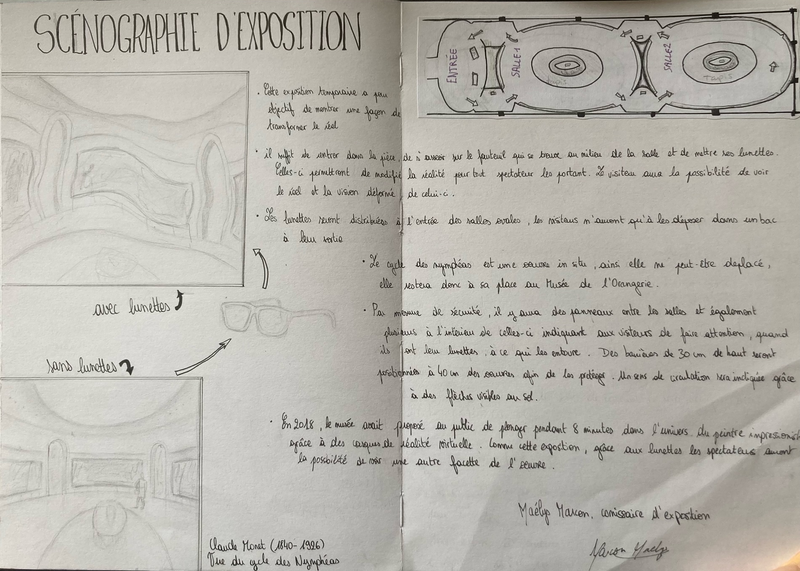 SCÉNOGRAPHIE D'EXPOSITION
ENTRÉE
SALLE 1
SALLE 2
. Cette exposition temporaire a pour
objectif de montrer une façon de
transformer le réel
. il suffit de rentrer dans la pièce, de s'asseoir sur le fauteuil qui se trouve au milieu de la salle et de mettre ses lunettes.
Celles-ci permettront de modifier la réalité pour tout spectateur les portant. Le visiteur aura la possibilité de voir
le réel et la vision déformée de celui-ci.
. Les lunettes seront distribuées à l'entrée des salles ovales, les visiteurs n'auront qu'à les déposer dans un bac
à leur sortie
. Le cycle des nymphéas est une oeuvre in situ, ainsi elle ne peut-être déplacé,
elle restera donc à sa place au Musée de l'Orangerie.
. Par mesure de sécurité, il y aura des panneaux entre les salles et également
plusieurs à l'intérieur de celles-ci indiquant aux visiteurs de faire attention, quand
ils ont leur lunettes, à ce qui les entoure. Des barrières de 30 cm de haut seront
positionnées à 40 cm des oeuvres afin de les protéger. Un sens de circulation sera indiquée grâce
à des flèches visibles au sol.
. En 2018, le musée avait proposé au public de plonger pendant 8 minutes dans l'univers du peintre impressionist
grâce à des casques de réalité virtuelle. Comme cette exposition, grâce aux lunettes les spectateurs auront
la possibilité de voir une autre facette de l'oeuvre.
avec lunettes
sans lunettes
Claude Monet (1840-1926)
Vue du cycle des Nymphéas
Maëlys Marcon, comissaire d'exposition
Marcon Maëlys